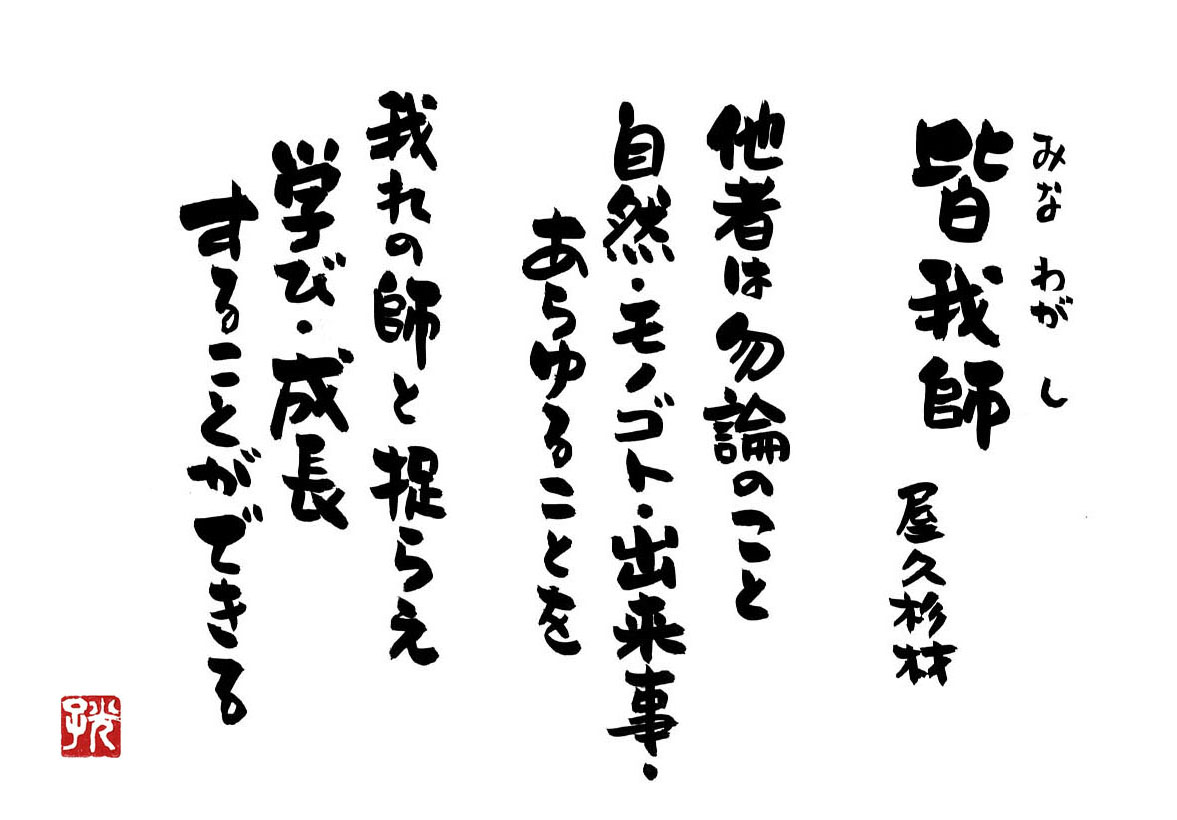 みな わが し
皆我師
屋久杉材
他者は勿論のこと
自然・モノゴト・出来事・
あらゆることを
我れの師と捉らえ
学び・成長
することができる